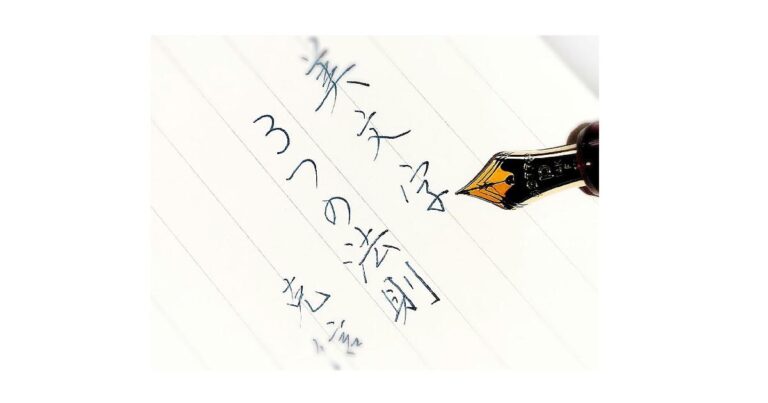 美文字
3つの法則